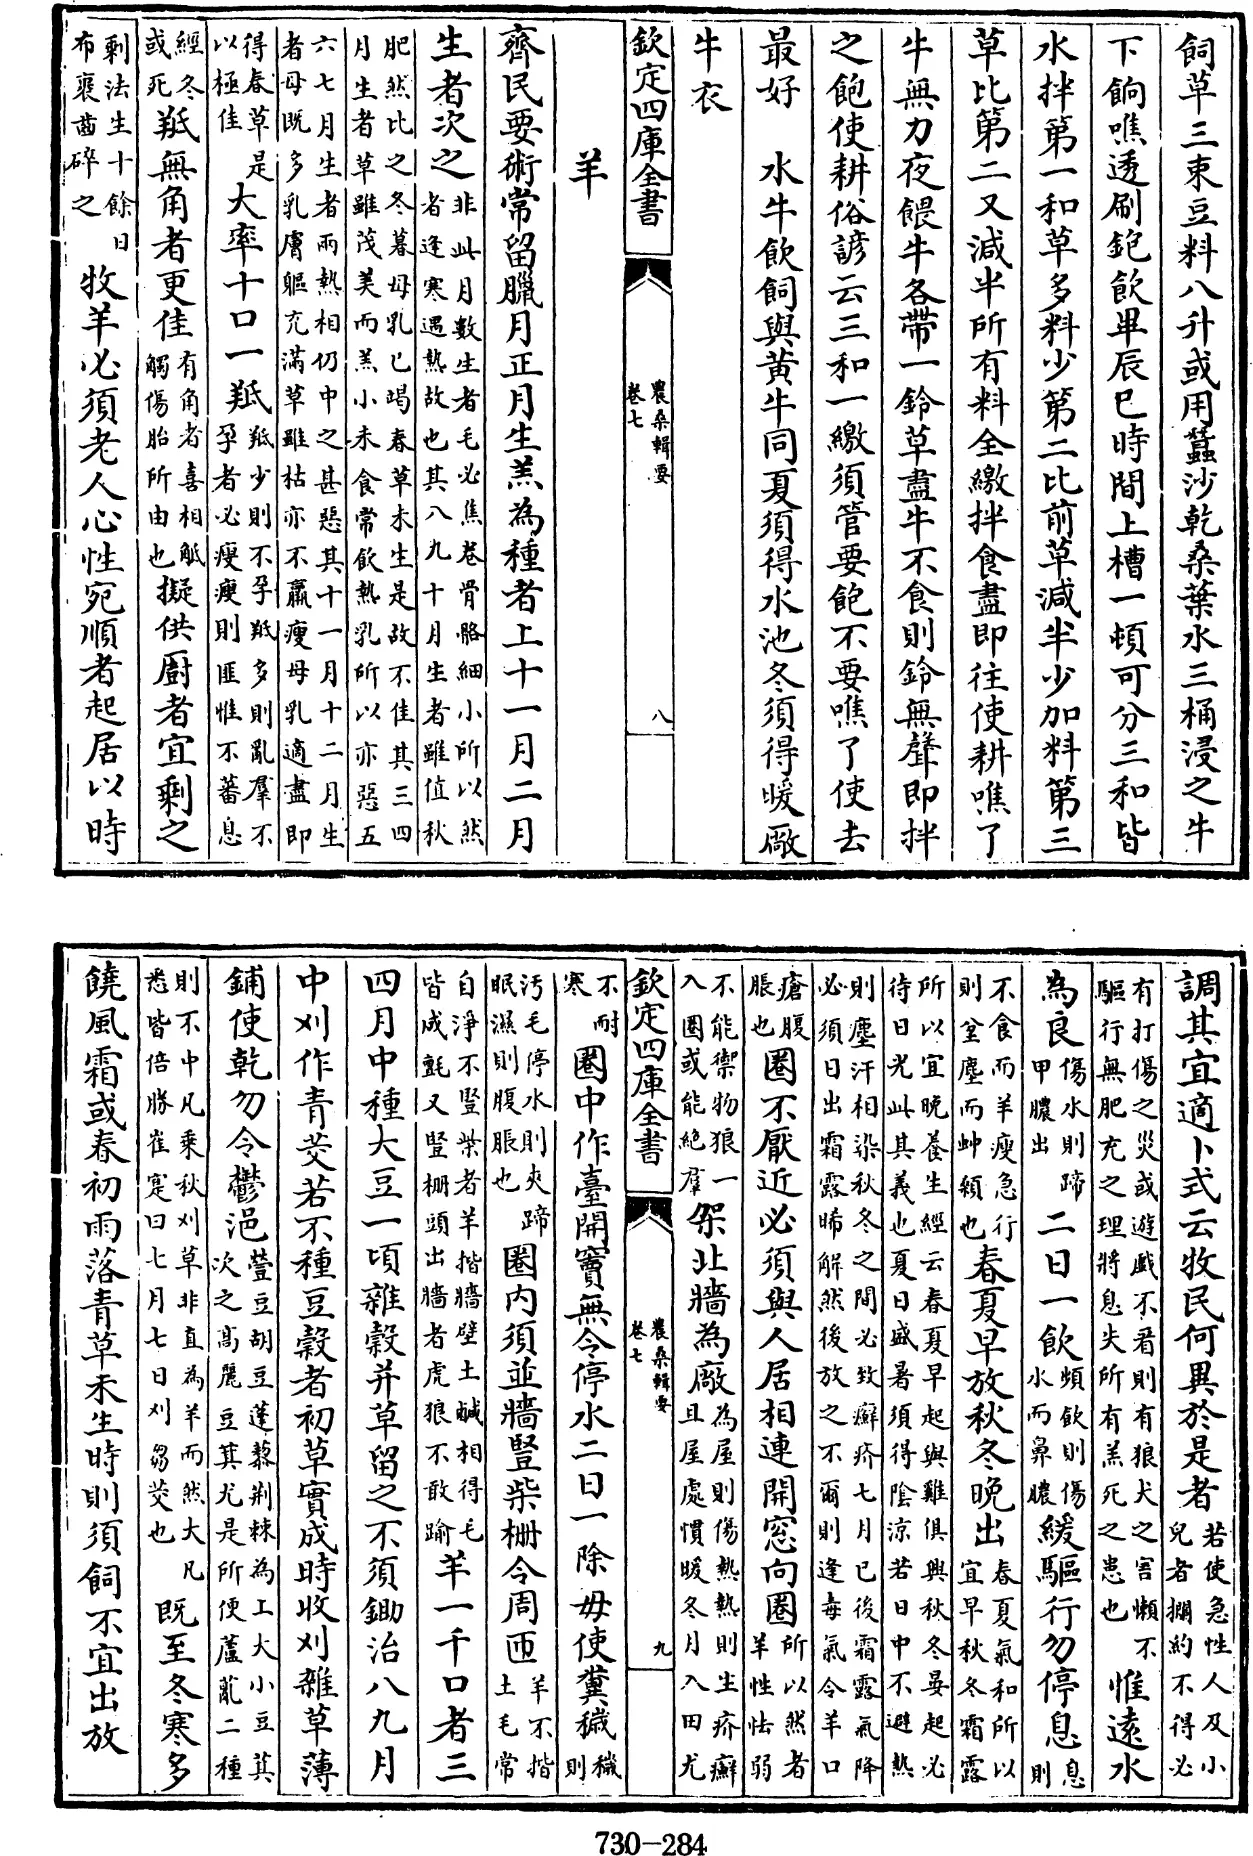 飼草三束豆料八升或用蠶沙乾桑葉水三桶浸之牛
下餉噍透刷鉋飲畢辰巳時間上槽一頓可分三和皆
水拌第一和草多料少第二比前草減半少加料第三
草比第二又減半所有料全繳拌食盡即往使耕噍了
牛無力夜餵牛各帶一鈴草盡牛不食則鈴無聲即拌
之飽使耕俗諺云三和一繳須管要飽不要噍了使去
最好　水牛飲飼與黄牛同夏須得水池冬須得暖廠
牛衣
欽定四庫全書
農桑輯要
卷七
八
羊
齊民要術常留臘月正月生羔為種者上十一月二月
生者次之非此月數生者毛必焦卷骨骼細小所以然
者逢寒遇熱故也其八九十月生者雖值秋
肥然比之冬暮母乳已竭春草未生是故不佳其三四
月生者草雖茂美而羔小未食常飲熱乳所以亦惡五
六七月生者兩熱相仍中之甚惡其十一月十二月生
者母既多乳膚軀充滿草雖枯亦不羸瘦母乳適盡即
得春草是
以極佳大率十口一羝羝少則不孕羝多則亂羣不
孕者必瘦瘦則匪惟不蕃息
經冬
或死羝無角者更佳有角者喜相觝
觸傷胎所由也擬供廚者宜剩之
剩法生十餘日
布裹齒碎之牧羊必須老人心性宛順者起居以時
調其宜適卜式云牧民何異於是者若使急性人及小
兒者攔約不得必
有打傷之災或遊戲不看則有狼犬之害懶不
驅行無肥充之理將息失所有羔死之患也惟遠水
為良傷水則蹄
甲膿出二日一飲頻飲則傷
水而鼻膿緩驅行勿停息息
則
不食而羊瘦急行
則坌塵而蚛顙也春夏早放秋冬晩出春夏氣和所以
宜早秋冬霜露
所以宜晚養生經云春夏早起與雞俱興秋冬晏起必
待日光此其義也夏日盛暑須得陰涼若日中不避熱
則塵汗相染秋冬之間必致癬疥七月已後霜露氣降
必須日出霜露晞解然後放之不爾則逢毒氣令羊口
瘡腹
脹也圈不厭近必須與人居相連開窓向圈所以然者
羊性怯弱
不能禦物狼一
入圈或能絶羣架北牆為廠為屋則傷熱熱則生疥癬
且屋處慣暖冬月入田尤
欽定四庫全書
農桑輯要
卷七
九
不耐
寒圈中作臺開竇無令停水二日一除毋使糞穢穢
則
汚毛停水則夾蹄
眠濕則腹脹也圈内須並牆竪柴栅令周匝羊不揩
土毛常
自淨不竪柴者羊揩牆壁土鹹相得毛
皆成氈又竪栅頭出牆者虎狼不敢踰羊一千口者三
四月中種大豆一頃雜穀并草留之不須鋤治八九月
中刈作青茭若不種豆穀者初草實成時收刈雜草薄
鋪使乾勿令鬱浥䝁豆胡豆蓬藜荆棘為上大小豆萁
次之高麗豆萁尤是所便蘆薍二種
則不中凡乘秋刈草非直為羊而然大凡
悉皆倍勝崔寔曰七月七日刈芻茭也既至冬寒多
饒風霜或春初雨落青草未生時則須飼不宜出放
730-284